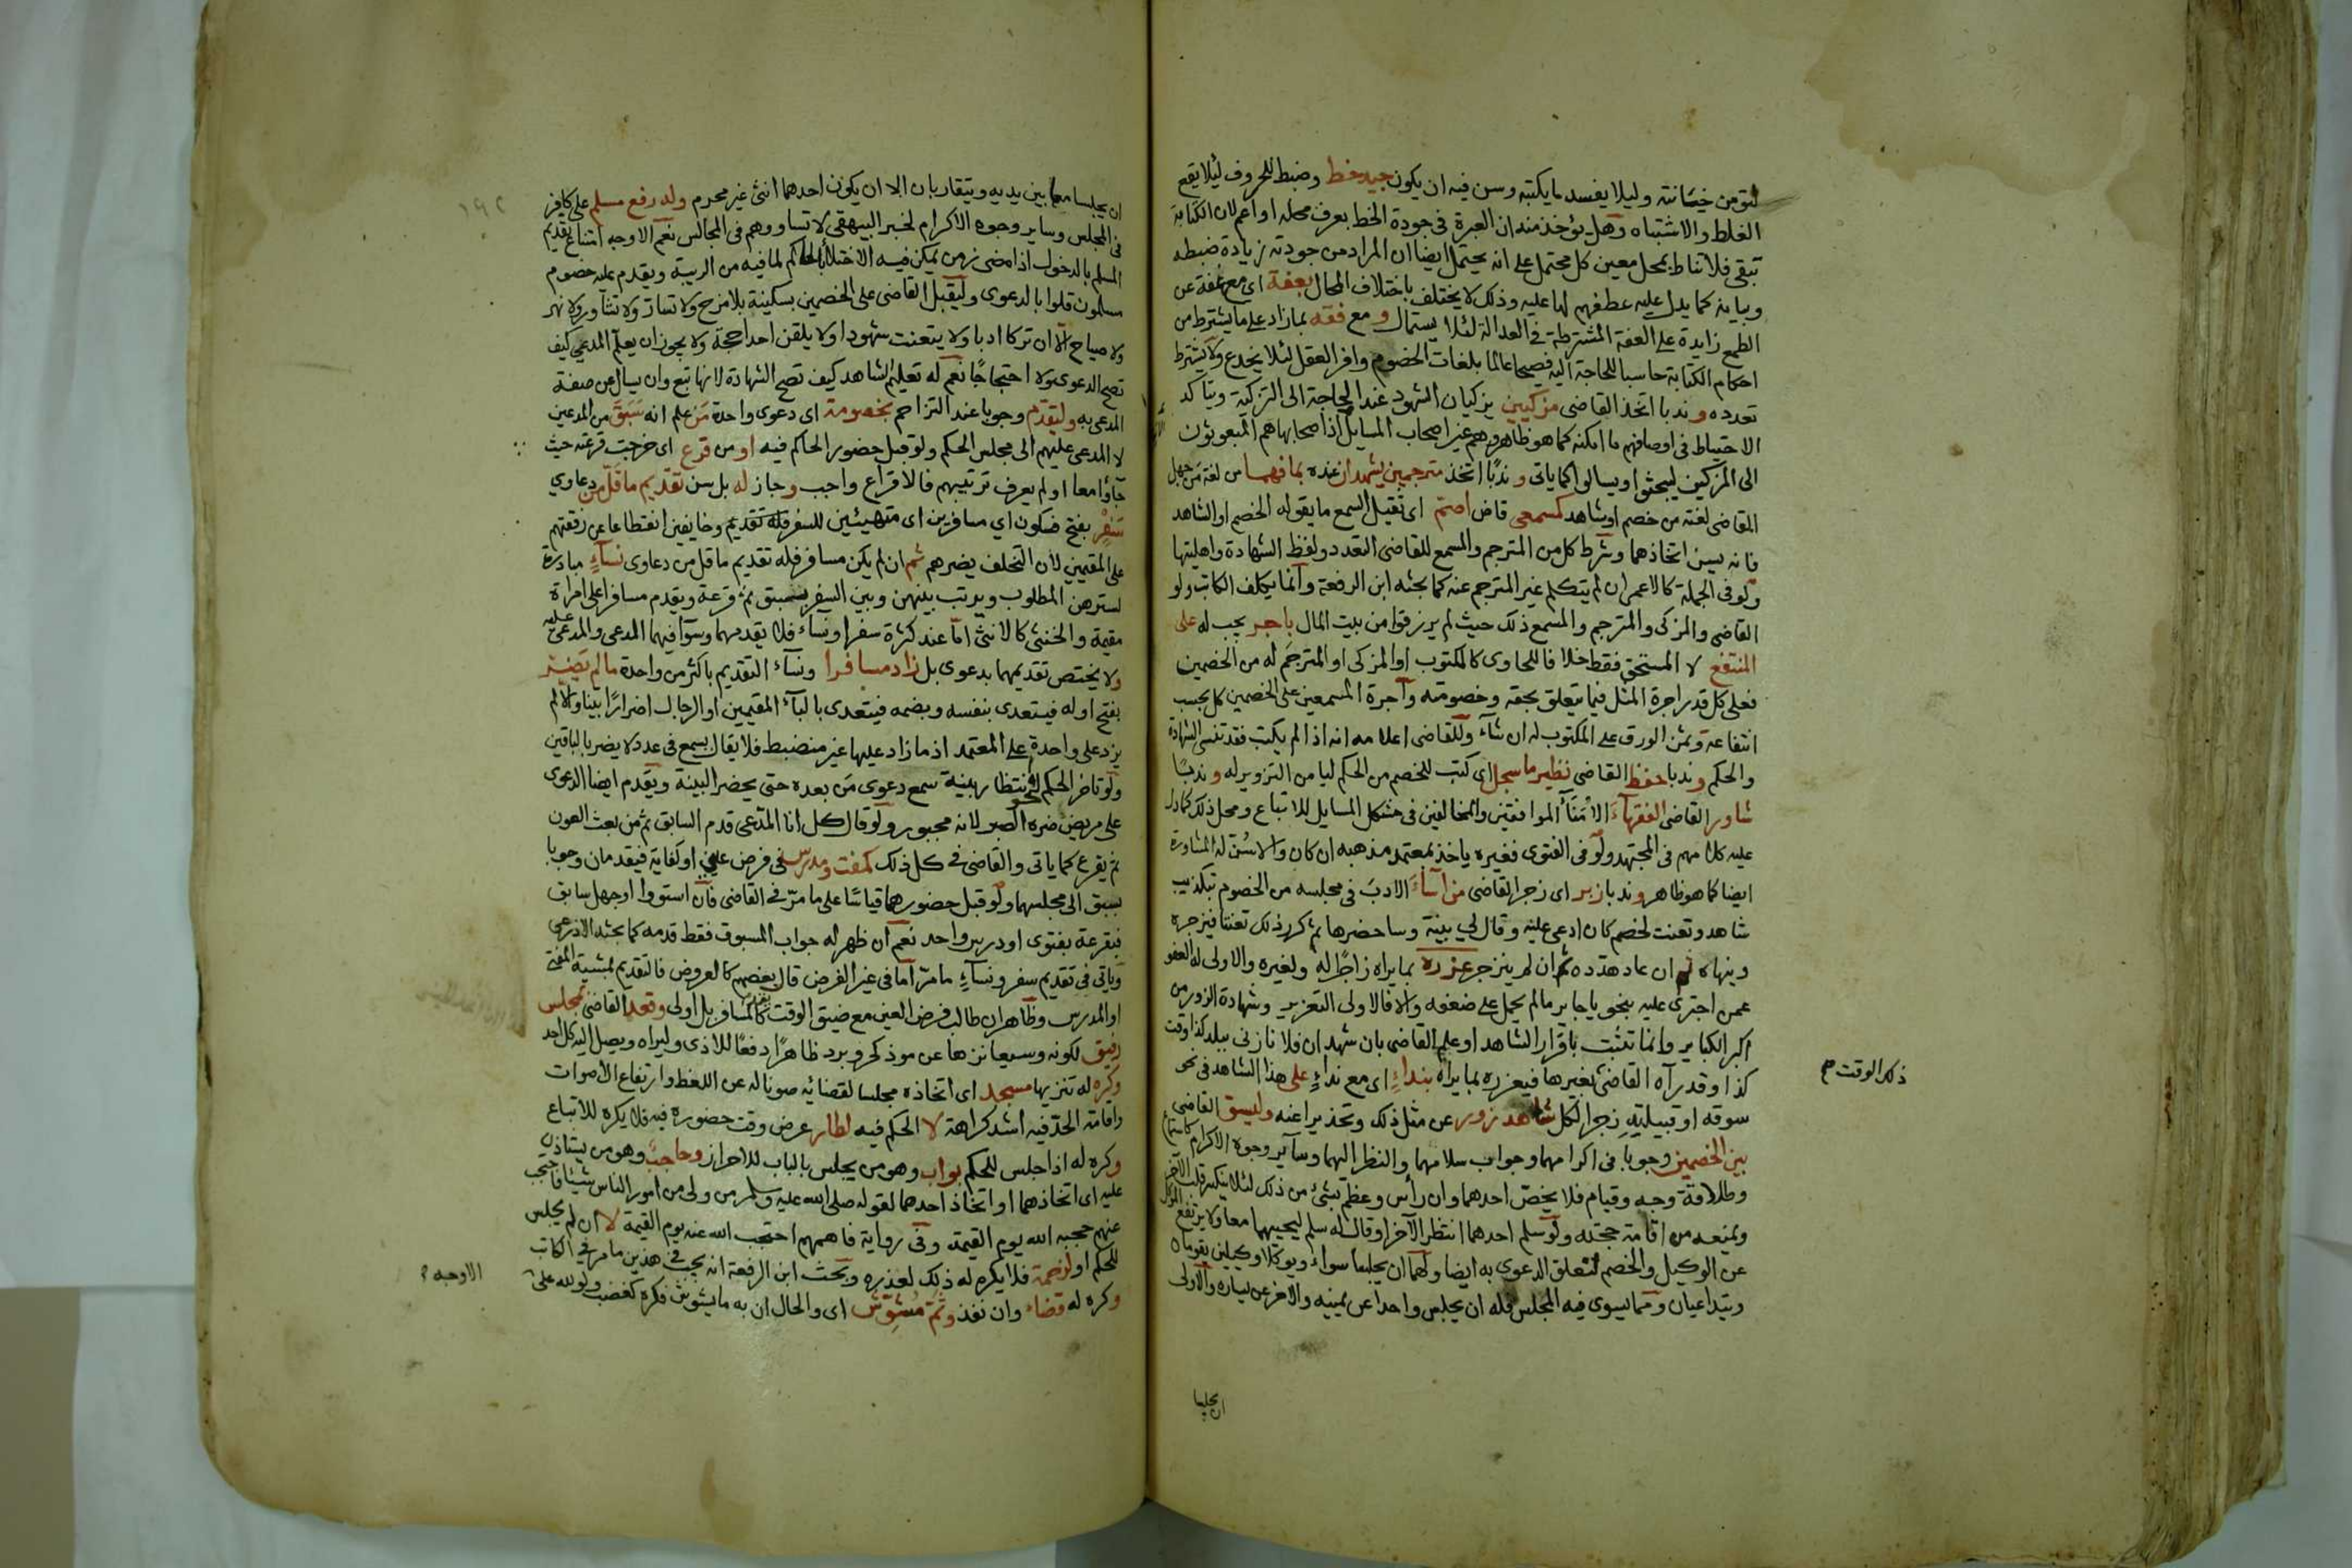 لتؤمن خيانته وليلا يفسد ما يكتبه وسن فيه ان يكون جيد خط وضبط للحروف ليلا يقع
الغلط والاشتباه وهل يؤخذ منه ان العبرة في جودة الخط بعرف محله او اعم لان الكتابة
تبقى فلا تناط بمحل معين كل محتمل على انه يحتمل ايضا ان المراد من جودته زيادة ضبطه
وبيانه كما يدل عليه عطفهم لها عليه وذلك لا يختلف باختلاف المحال بعفة اي مع عفة عن
الطمع زايدة على العفة المشترطة في العدالة لئلا يستمال و مع فقه بما زاد على ما يشترط من
احكام الكتابة حاسبا للحاجة اليه فصيحا عالما بلغات الخصوم وافر العقل لئلا يخدع ولا يشترط
تعدده وندبا اتخذ القاضي مزكيين يزكيان الشهود عند الحاجة الى التزكية ويتأكد
الاحتياط في اوصافهم ما امكنه كما هو ظاهر وهم غير اصحاب المسايل اذ اصحابها هم المبعوثون
الى المزكين ليبحثوا ويسالوا كما ياتي وندبا اتخذ مترجمين يشهدان عنده بما فهما من لغة من جهل
القاضي لغته من خصم او شاهد كسمعي قاض اصم اي ثقيل السمع ما يقوله الخصم او الشاهد
فانه يسن اتخاذهما وشرط كل من المترجم والمسمع للقاضي التعدد ولفظ الشهادة واهليتها
ولو في الجملة كالاعمى ان لم يتكلم غير المترجم عنه كما بحثه ابن الرفعة وانما يكلف الكاتب ولو
القاضي والمزكي والمترجم والمسمع ذلك حيث لم يرزقوا من بيت المال باجر يجب له على
المنتفع لا المستحق فقط خلافا للحاوي كالمكتوب او المزكى او المترجم له من الخصمين
فعلى كل قدر اجرة المثل فيما يتعلق بحقه وخصومته واجرة المسمعين على الخصمين كل بحسب
انتفاعه وثمن الورق على المكتوب له ان شاء وللقاضي اعلامه انه اذا لم يكتب فقد تنسى الشهادة
والحكم وندبا حفظ القاضي نظير ما سجل اي كتب للخصم من الحكم ليامن التزوير له وندبا
شاور القاضي الفقهاء الامناء الموافقين والمخالفين في مشكل المسايل للاتباع ومحل ذلك كما دل
عليه كلامهم في المجتهد ولو في الفتوى فغيره ياخذ بمعتمد مذهبه ان كان والا سن له المشاورة
ايضا كما هو ظاهر وندبا زبر اي زجر القاضي من اساء الادب في مجلسه من الخصوم بتكذيب
شاهد وتعنت لخصم كان ادعى عليه وقال لي بينة وساحضرها ثم كرر ذلك تعنتا فيزجره
وينهاه ثم ان عاد هدده ثم ان لم ينزجر عزره بما يراه زاجرا له ولغيره والاولى له العفو
عمن اجترى عليه بنحو يا جاير ما لم يحمل على ضعفه والا فالاولى التعزير وشهادة الزور من
اكبر الكباير وانما تثبت باقرار الشاهد او علم القاضي بان شهد ان فلانا زنى ببلد كذا وقت
كذا وقد رآه القاضي بغيرها فيعزره بما يراه بنداء اي مع نداء على هذا الشاهد في نحو
ذلك الوقت صح
سوقه او قبيلته زجرا لكل شاهد زور عن مثل ذلك وتحذيرا عنه وليسوِّ القاضي
بين الخصمين وجوبا في اكرامهما وجواب سلامهما والنظر اليهما وساير وجوه الاكرام كاستماع
وطلاقة وجه وقيام فلا يخص احدهما وان رأس وعظم بشيء من ذلك لئلا ينكسر قلب الآخر
ويمنعه من اقامة حجته ولو سلم احدهما انتظر الآخر او قال له سلم ليجيبهما معا ولا يرتفع الموكل
عن الوكيل والخصم لتعلق الدعوى به ايضا ولهما ان يجلسا سواء ويوكلا وكيلين يقوما
ويتداعيان ومما يسوى فيه المجلس فله ان يجلس واحدا عن يمينه والاخر عن يساره والاولى
ان يجلسا
ان يجلسا معا بين يديه ويتقاربان الا ان يكون احدهما انثى غير محرم وله رفع مسلم على كافر
في المجلس وساير وجوه الاكرام لخبر البيهقي لا تساووهم في المجالس نعم الاوجه امتناع تقديم
المسلم بالدخول اذا مضى زمن يمكن فيه الاختلاء بالحاكم لما فيه من الريبة ويقدم عليه خصوم
مسلمون قلوا بالدعوى وليقبل القاضي على الخصمين بسكينة بلا مزح ولا تسار ولا تشاور ولا نهر
ولا صياح الا ان تركا ادبا ولا يتعنت شهودا ولا يلقن احدا حجة ولا يجوز ان يعلم المدعي كيف
تصح الدعوى ولا احتجاجا نعم له تعليم الشاهد كيف تصح الشهادة لانها تبع وان يسال عن صفة
المدعى به وليقدم وجوبا عند التزاحم بخصومة اي دعوى واحدة من علم انه سبق من المدعين
لا المدعى عليهم الى مجلس الحكم ولو قبل حضور الحاكم فيه او من قرع اي خرجت قرعته حيث
جاؤا معا او لم يعرف ترتيبهم فالاقراع واجب وجاز له بل سن تقديم ما قل من دعاوي
سفر بفتح فسكون اي مسافرين اي متهيئين للسفر فله تقديم وخايفين انقطاعا عن رفقتهم
على المقيمين لان التخلف يضرهم ثم ان لم يكن مسافر فله تقديم ما قل من دعاوى نساء مبادرة
لسترهن المطلوب ويرتب بينهن وبين السفر بسبق ثم قرعة ويقدم مسافرا على امراة
مقيمة والخنثى كالانثى اما عند كثرة سفر او نساء فلا يقدمهما وسواء فيهما المدعي والمدعى عليه
ولا يختص تقديمهما بدعوى بل زاد مسافرا ونساء التقديم باكثر من واحدة ما لم تضر
بفتح اوله فيتعدى بنفسه وبضمه فيتعدى بالباء المقيمين او الرجال اضرارا بينا والا لم
يزد على واحدة على المعتمد اذ ما زاد عليها غير منضبط فلا يقال يسمع في عدد لا يضر بالباقين
ولو تاخر الحكم لنحو انتظار بينة سمع دعوى من بعده حتى يحضر البينة ويقدم ايضا الدعوى
على مريض ضره الصبر لانه مجبور ولو قال كل انا المدعي قدم السابق ثم من بعث العون
ثم يقرع كما ياتي والقاضي في كل ذلك كمفت ومدرس في فرض عين او كفاية فيقدمان وجوبا
بسبق الى مجلسهما ولو قبل حضورهما قياسا على ما مر في القاضي فان استووا او جهل سابق
فبقرعة بفتوى او درس واحد نعم ان ظهر له جواب المسبوق فقط قدمه كما بحثه الاذرعي
وياتي في تقديم سفر ونساء ما مر اما في غير الفرض قال بعضهم كالعروض فالتقديم بمشيئة المفتي
او المدرس وظاهر ان طالب فرض العين مع ضيق الوقت يقدم كالمسافر بل اولى وقعد القاضي بمجلس
رفيق لكونه وسيعا نزها عن موذ كحر وبرد ظاهرا دفعا للاذى وليراه ويصل اليه كل احد
وكره له تنزيها مسجد اي اتخاذه مجلسا لقضائه صونا له عن اللغط وارتفاع الاصوات
واقامة الحد فيه اشد كراهة لا الحكم فيه لطار عرض وقت حضوره فيه فلا يكره للاتباع
وكره له اذا جلس للحكم بواب وهو من يجلس بالباب للاحراز وحاجب وهو من يستاذن
عليه اي اتخاذهما او اتخاذ احدهما لقوله صلى الله عليه وسلم من ولي من امور الناس شيئا فاحتجب
عنهم حجبه الله يوم القيمة وفي رواية فاهمهم احتجب الله عنه يوم القيمة لا ان لم يجلس
للحكم او لزحمة فلا يكره له ذلك لعذره وبحث ابن الرفعة انه يجب في هذين ما مر في الكاتب
الاوجه
وكره له قضاء وان نفذ وثم مشوش اي والحال ان به ما يشوش فكره كغضب ولو لله على